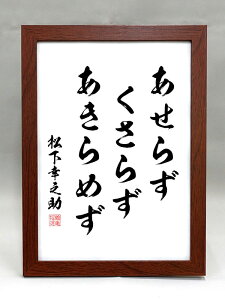 あせらず
くさらず
あきらめず
松下幸之助